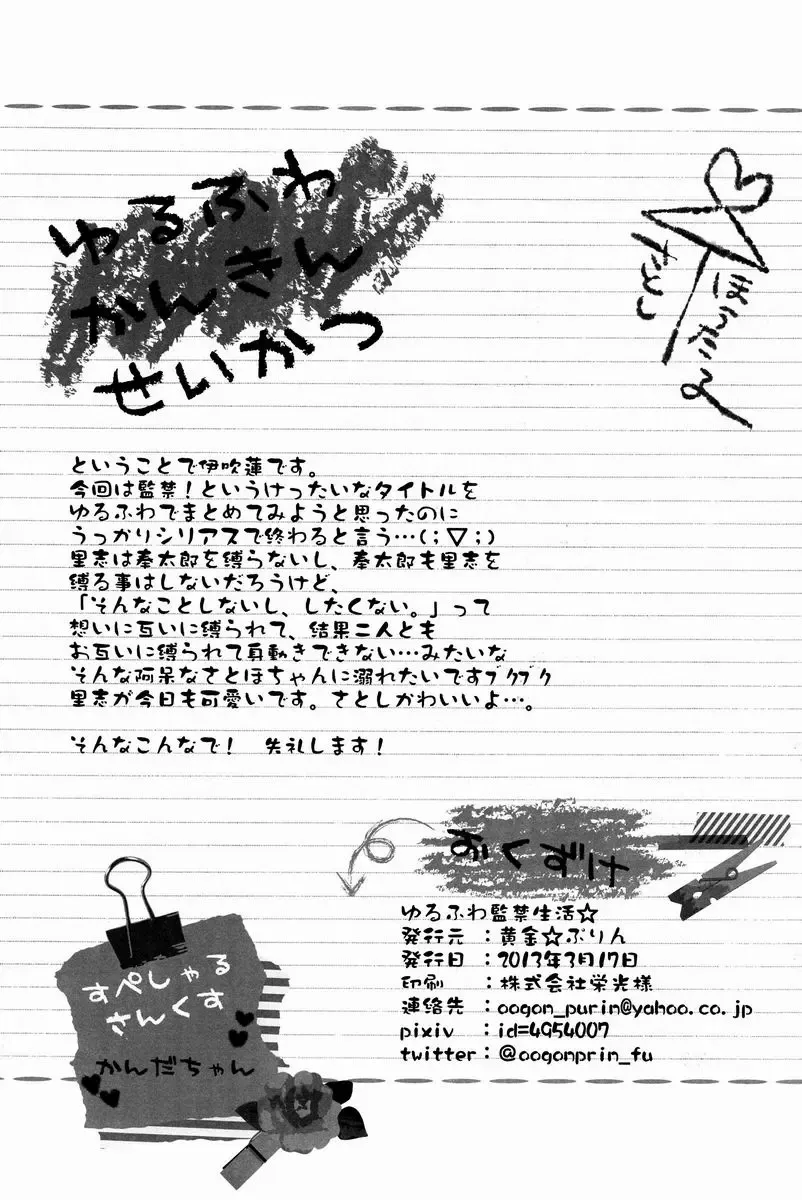 ゆるふわ
かんきん
せいかつ
ほうたる
さとし
ということで伊吹蓮です。
今回は監禁！というけったいなタイトルを
ゆるふわでまとめてみようと思ったのに
うっかりシリアスで終わると言う…(；▽；)
里志は奉太郎を縛らないし、奉太郎も里志を
縛る事はしないだろうけど、
「そんなことしないし、したくない。」って
想いに互いに縛られて、結果二人とも
お互いに縛られて身動きできない…みたいな
そんな阿呆なさとほちゃんに溺れたいですﾌﾞｸﾌﾞｸ
里志が今日も可愛いです。さとしかわいいよ…。
そんなこんなで！　失礼します！
おくづけ
ゆるふわ監禁生活☆
発行元　：黄金☆ぷりん
発行日　：2013年3月17日
印刷　　：株式会社栄光様
連絡先　：oogon_purin@yahoo.co.jp
pixiv　：id=4954007
twitter：@oogonprin_fu
すぺしゃる
さんくす
かんだちゃん